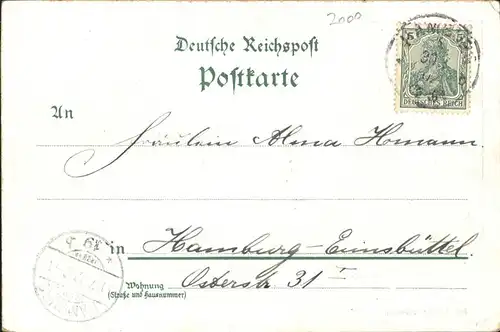 2000
Deutsche Reichspost
Postkarte
DEUTSCHES REICH
An
Fräulein Alma Hmann
in Hamburg-Eimsbüttel
Wohnung
(Straße und Hausnummer)
Osterstr. 31 I